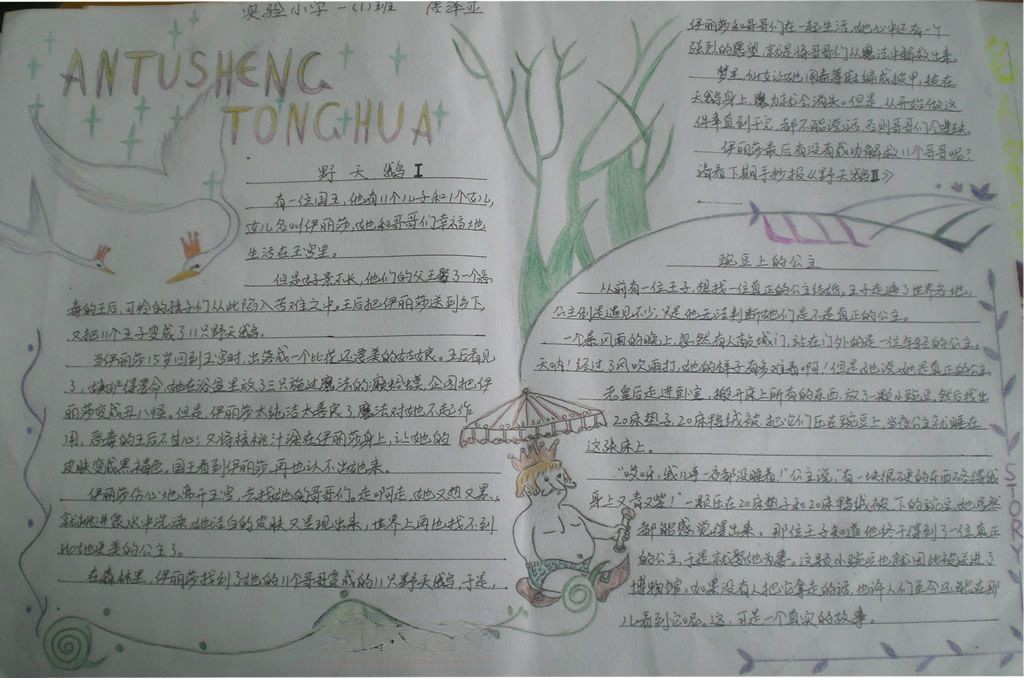 实验小学一(1)班 周泽亚
ANTUSHENG
TONGHUA
野天鹅 I
有一位国王，他有11个儿子和1个女儿，
女儿名叫伊丽莎，她和哥哥们幸福地
生活在王宫里。
但是好景不长，他们的父王娶了一个恶
毒的王后，可怜的孩子们从此陷入苦难之中。王后把伊丽莎送到乡下，
又把11个王子变成了11只野天鹅。
当伊丽莎15岁回到王宫时，出落成一个比花还要美的姑娘。王后看见
了，嫉妒得要命，她在浴室里放了三只施过魔法的癞蛤蟆，企图把伊
丽莎变成丑八怪。但是，伊丽莎太纯洁太善良了，魔法对她不起作
用，恶毒的王后不甘心，又将核桃汁涂在伊丽莎身上，让她的
皮肤变成黑褐色，国王看到伊丽莎，再也认不出她来。
伊丽莎伤心地离开王宫，去找她的哥哥们。走啊走，她又热又累，
就跳进泉水中洗澡，她洁白的皮肤又呈现出来，世界上再也找不到
比她更美的公主了。
在森林里，伊丽莎找到了她的11个哥哥变成的11只野天鹅，于是，
伊丽莎和哥哥们在一起生活，她心中还有一个
强烈的愿望，就是将哥哥们从魔法中解救出来。
梦里，仙女让她用荨麻编成披甲，披在
天鹅身上，魔力就会消失。但是，从开始做这
件事直到干完，都不能说话，否则哥哥们会遭殃。
伊丽莎最后有没有成功解救11个哥哥呢？
请看下期手抄报《野天鹅II》
豌豆上的公主
从前有一位王子，想找一位真正的公主结婚，王子走遍了世界各地，
公主倒是遇见不少，只是他无法判断她们是不是真正的公主。
一个暴风雨的晚上，忽然有人敲城门，站在门外的是一位年轻的公主。
天呐！经过了风吹雨打，她的样子有多难看啊！但是她说她是真正的公主。
老皇后走进卧室，搬开床上所有的东西，放了一颗小豌豆，然后找出
20床垫子，20床鸭绒被，把它们压在豌豆上，当夜公主就睡在
这张床上。
“哎呀，我几乎一夜都没睡着！”公主说，“有一块很硬的东西硌得我
身上又青又紫！”一颗压在20床垫子和20床鸭绒被下的豌豆，她居然
都能感觉得出来，那位王子知道他终于得到了一位真正
的公主，于是就娶她为妻。这颗小豌豆也就因此被送进了
博物馆，如果没有人把它拿走的话，也许人们至今还能在那
儿看到它呢。这，可是一个真实的故事。
STORY